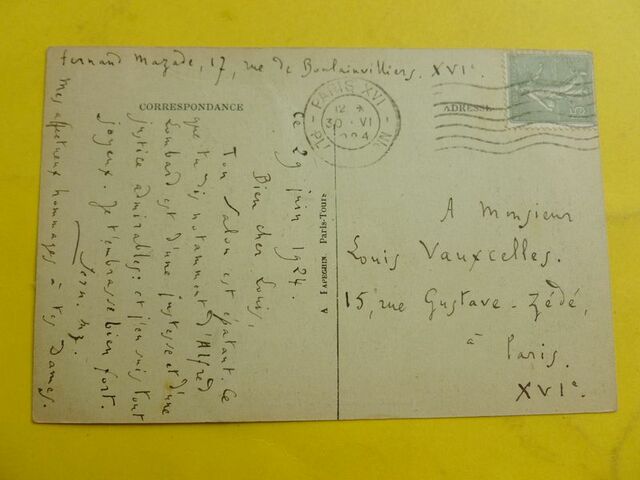 Fernand Mazade, 17, rue de Boulainvilliers. XVIe.
CORRESPONDANCE
ADRESSE
PARIS XVI
12
30 · VI
PL
ce 29 juin 1924.
Bien cher Louis,
Ton Salon est épatant. Ce
que tu dis notamment d'Alfred
Lombard est d'une justesse et d'une
justice admirables: et j'en suis tout
joyeux. Je t'embrasse bien fort.
Fern. Mz.
Mes affectueux hommages à tes Dames.
A PAPEGHIN Paris-Tours
A Monsieur
Louis Vauxcelles.
15, rue Gustave-Zédé,
à
Paris.
XVIe.